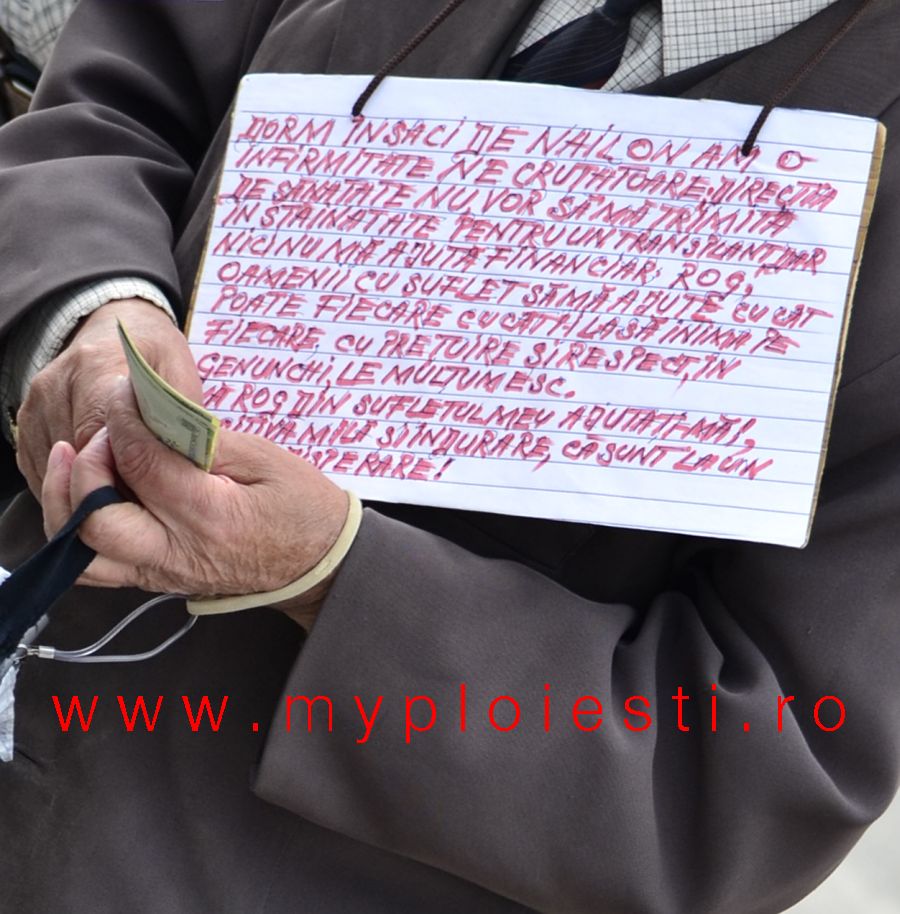 DORM ÎN SACI DE NAILON AM, O
INFIRMITATE NE CRUȚĂTOARE, DIRECȚIA
DE SĂNĂTATE NU VOR SĂ MĂ TRIMITĂ
IN STĂINATATE PENTRU UN TRANSPLANT, DAR
NICI NU MĂ AJUTĂ FINANCIAR; ROG,
OAMENII CU SUFLET SĂ MĂ AJUTE CU CÂT
POATE FIECARE CU CÂT Î-I LASĂ INIMA PE
FIECARE, CU PREȚUIRE ȘI RESPECT, ÎN
GENUNCHI, LE MULȚUMESC.
ROG DIN SUFLETUL MEU AJUTAȚI-MĂ!,
MILĂ ȘI ÎNDURARE, CĂ SUNT LA UN
www.myploiesti.ro